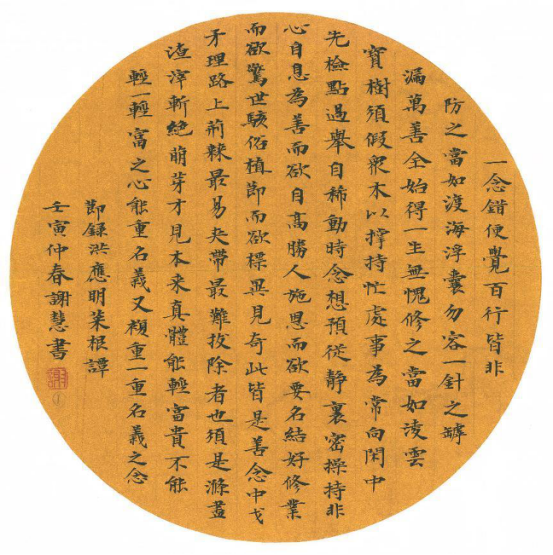 一念錯便覺百行皆非
防之當如渡海浮囊勿容一針之罅
漏萬善全始得一生無愧修之當如凌雲
寶樹須假衆木以撐持忙處事為常向閑中
先檢點過舉自稀動時念想預從静裏密操持非
心自息為善而欲自高勝人施恩而欲要名結好修業
而欲驚世駭俗植節而欲標異見奇此皆是善念中戈
矛理路上荊棘最易夾帶最難拔除者也須是滌盡
渣滓斬絕萌芽才見本来真體能輕富貴不能
輕一輕富之心能重名義又複重一重名義之念
節錄洪應明菜根譚
壬寅仲春謝慧書